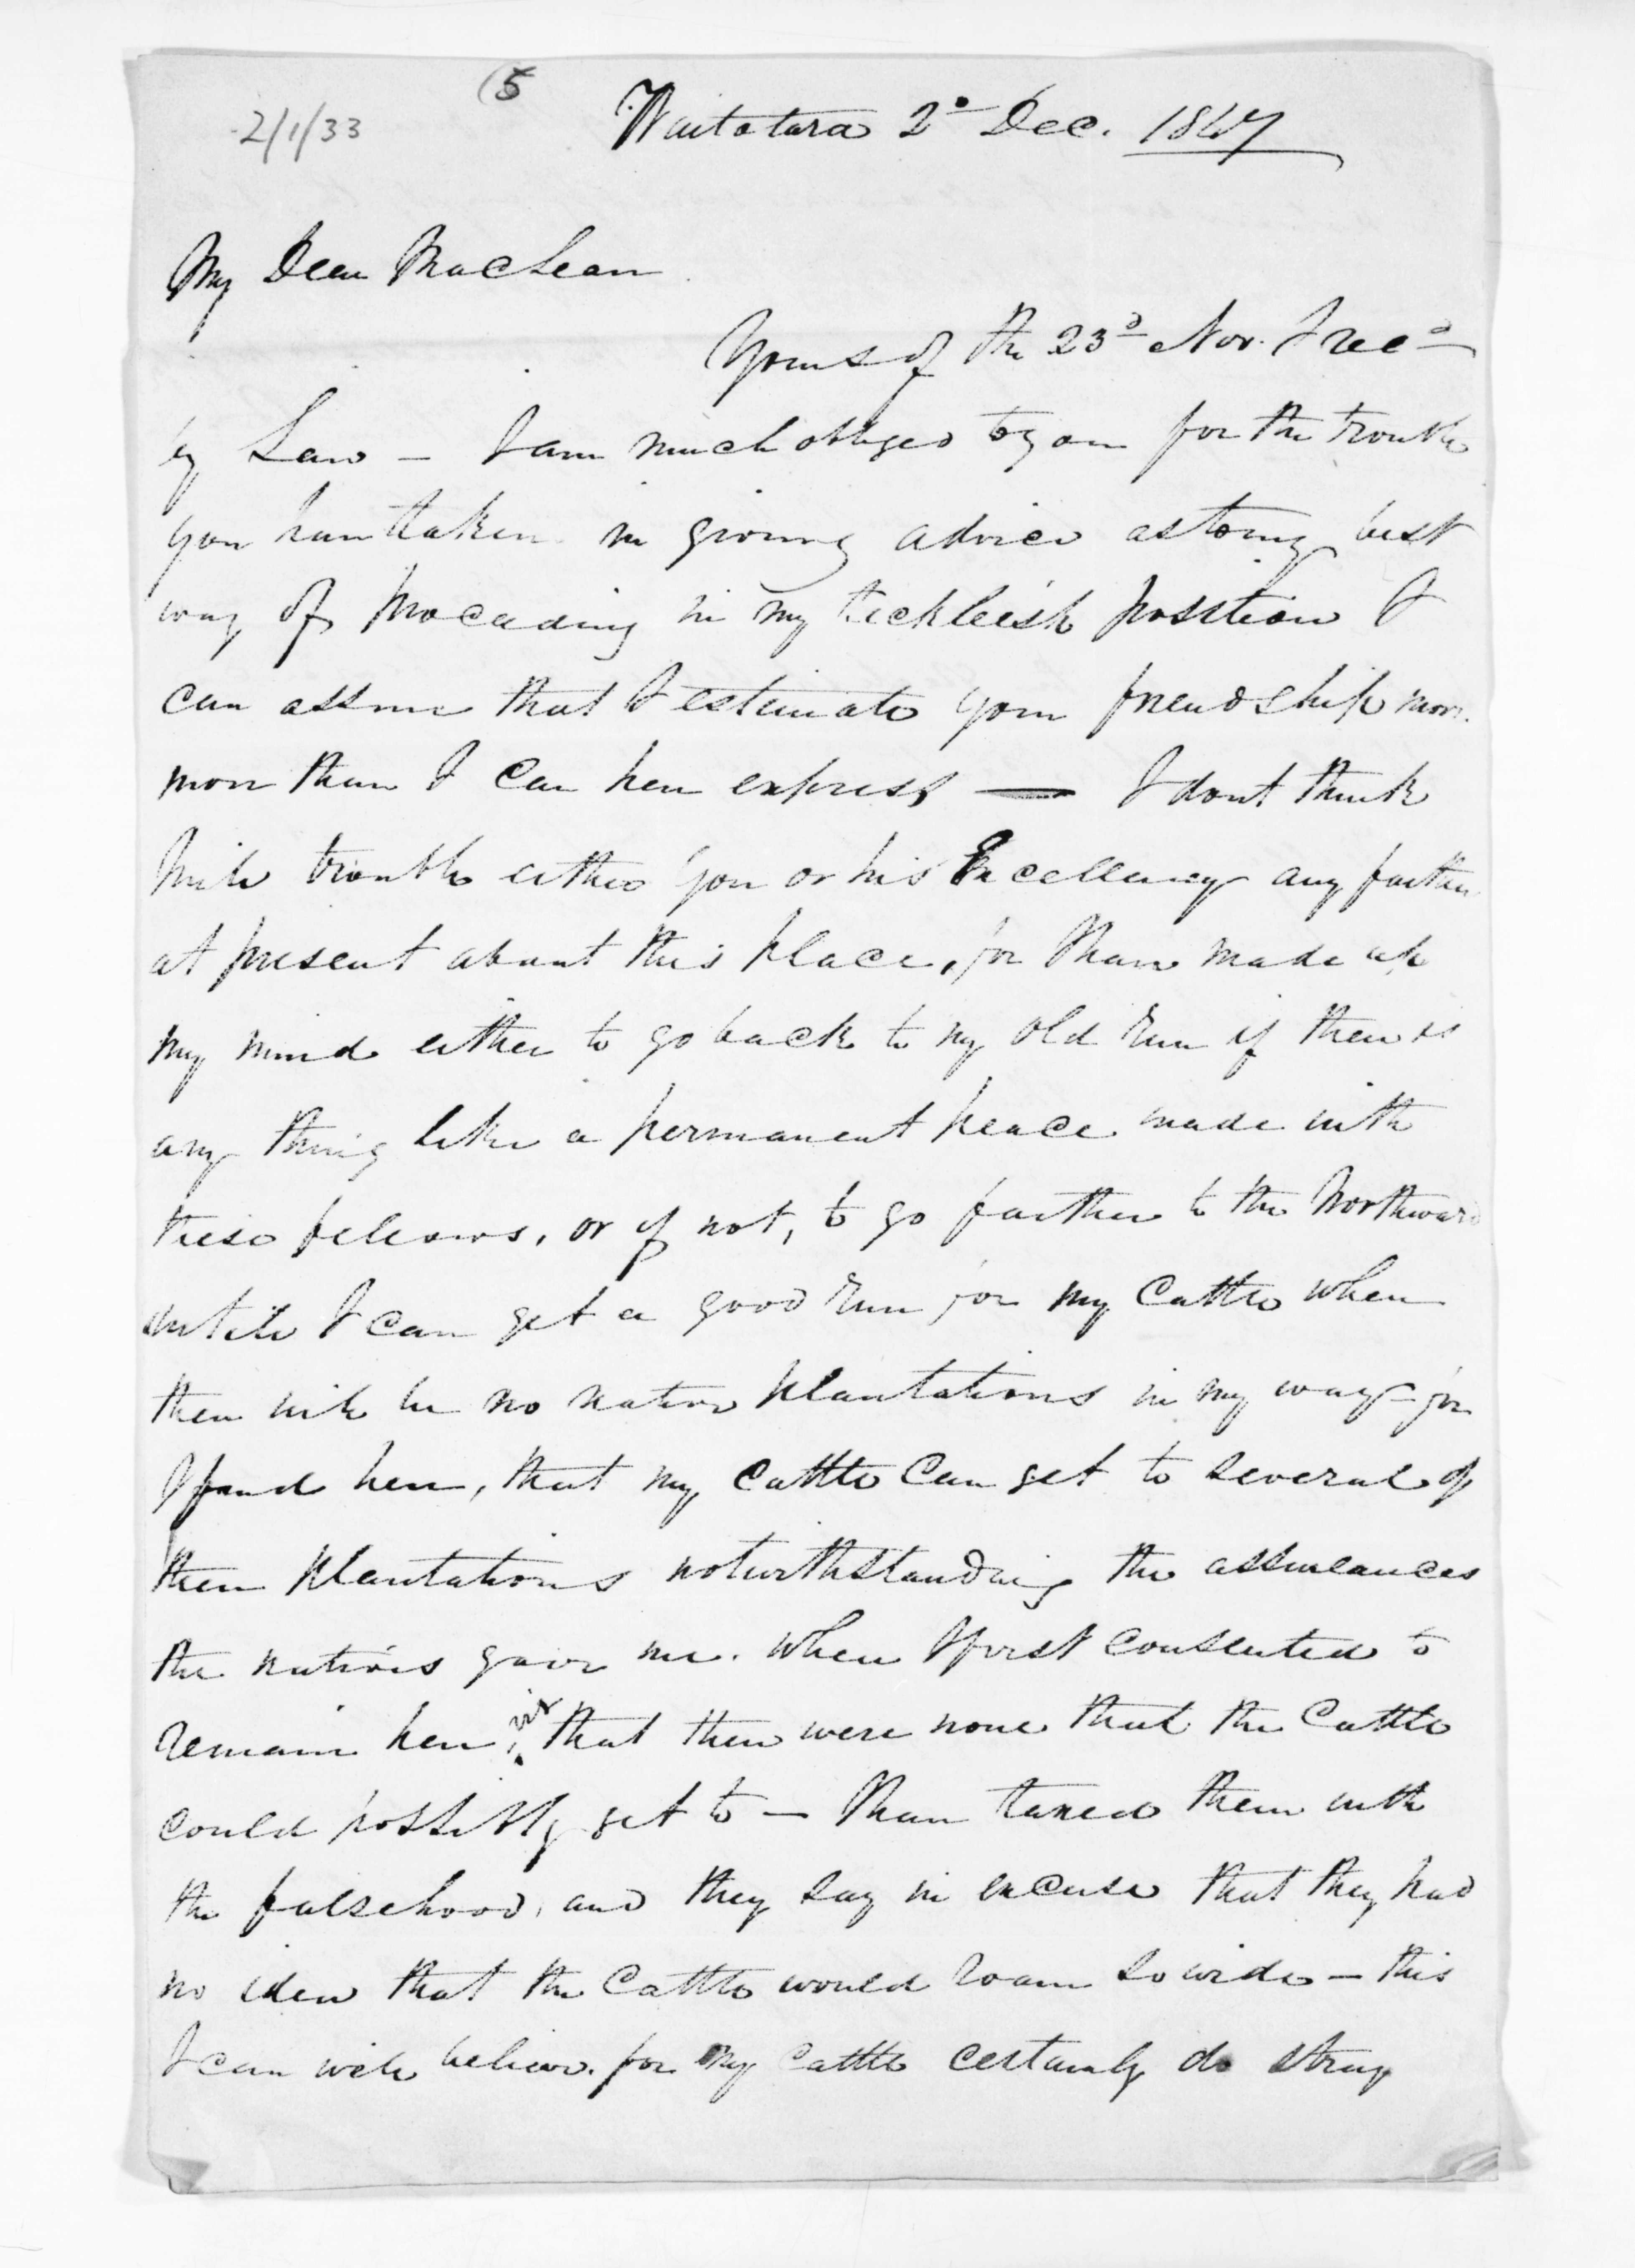 2/1/33
(5
Waitotara 2d Dec. 1847
My Dear MacLean
Yours of the 23d Nov. I recd
by Law — I am much obliged to you for the trouble
you have taken in giving advice as to my best
way of proceeding in my tickleish position I
can assure that I esteimate your friendship more
more than I can here express — I dont think
I will trouble either you or his Excellency any further
at present about this place, for I have made up
my mind either to go back to my old run if there is
any thing like a permanent peace made with
these fellows, or if not, to go further to the Northward
until I can get a good run for my Cattle when
there will be no native plantations in my way for
I find here, that my cattle can get to several of
their plantations notwithstanding the assureances
the natives gave me. when I first consented to
remain here, viz that there were none that the Cattle
could possibly get to — I have taxed them with
the falsehood, and they say in excuse that they had
no idea that the Cattle would roam so wide — this
I can well believe. for my cattle certainly do stray